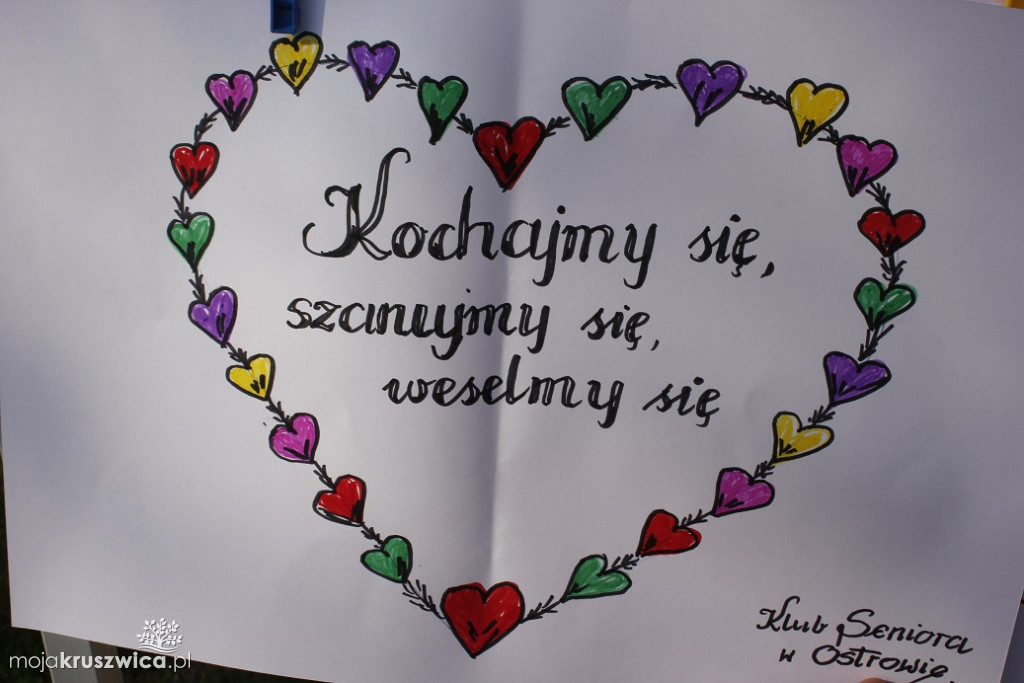 Kochajmy się,
szanujmy się,
weselmy się
Klub Seniora
w Ostrowie
mojakruszwica.pl